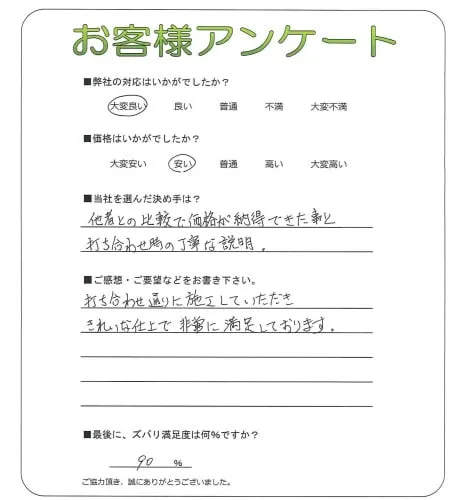 お客様アンケート
■弊社の対応はいかがでしたか？
大変良い 良い 普通 不満 大変不満
■価格はいかがでしたか？
大変安い 安い 普通 高い 大変高い
■当社を選んだ決め手は？
他者との比較で価格が納得できた事と
打ち合わせ時の丁寧な説明。
■ご感想・ご要望などをお書き下さい。
打ち合わせ通りに施工していただき
きれいな仕上で非常に満足しております。
■最後に、ズバリ満足度は何％ですか？
90 ％
ご協力頂き、誠にありがとうございました。